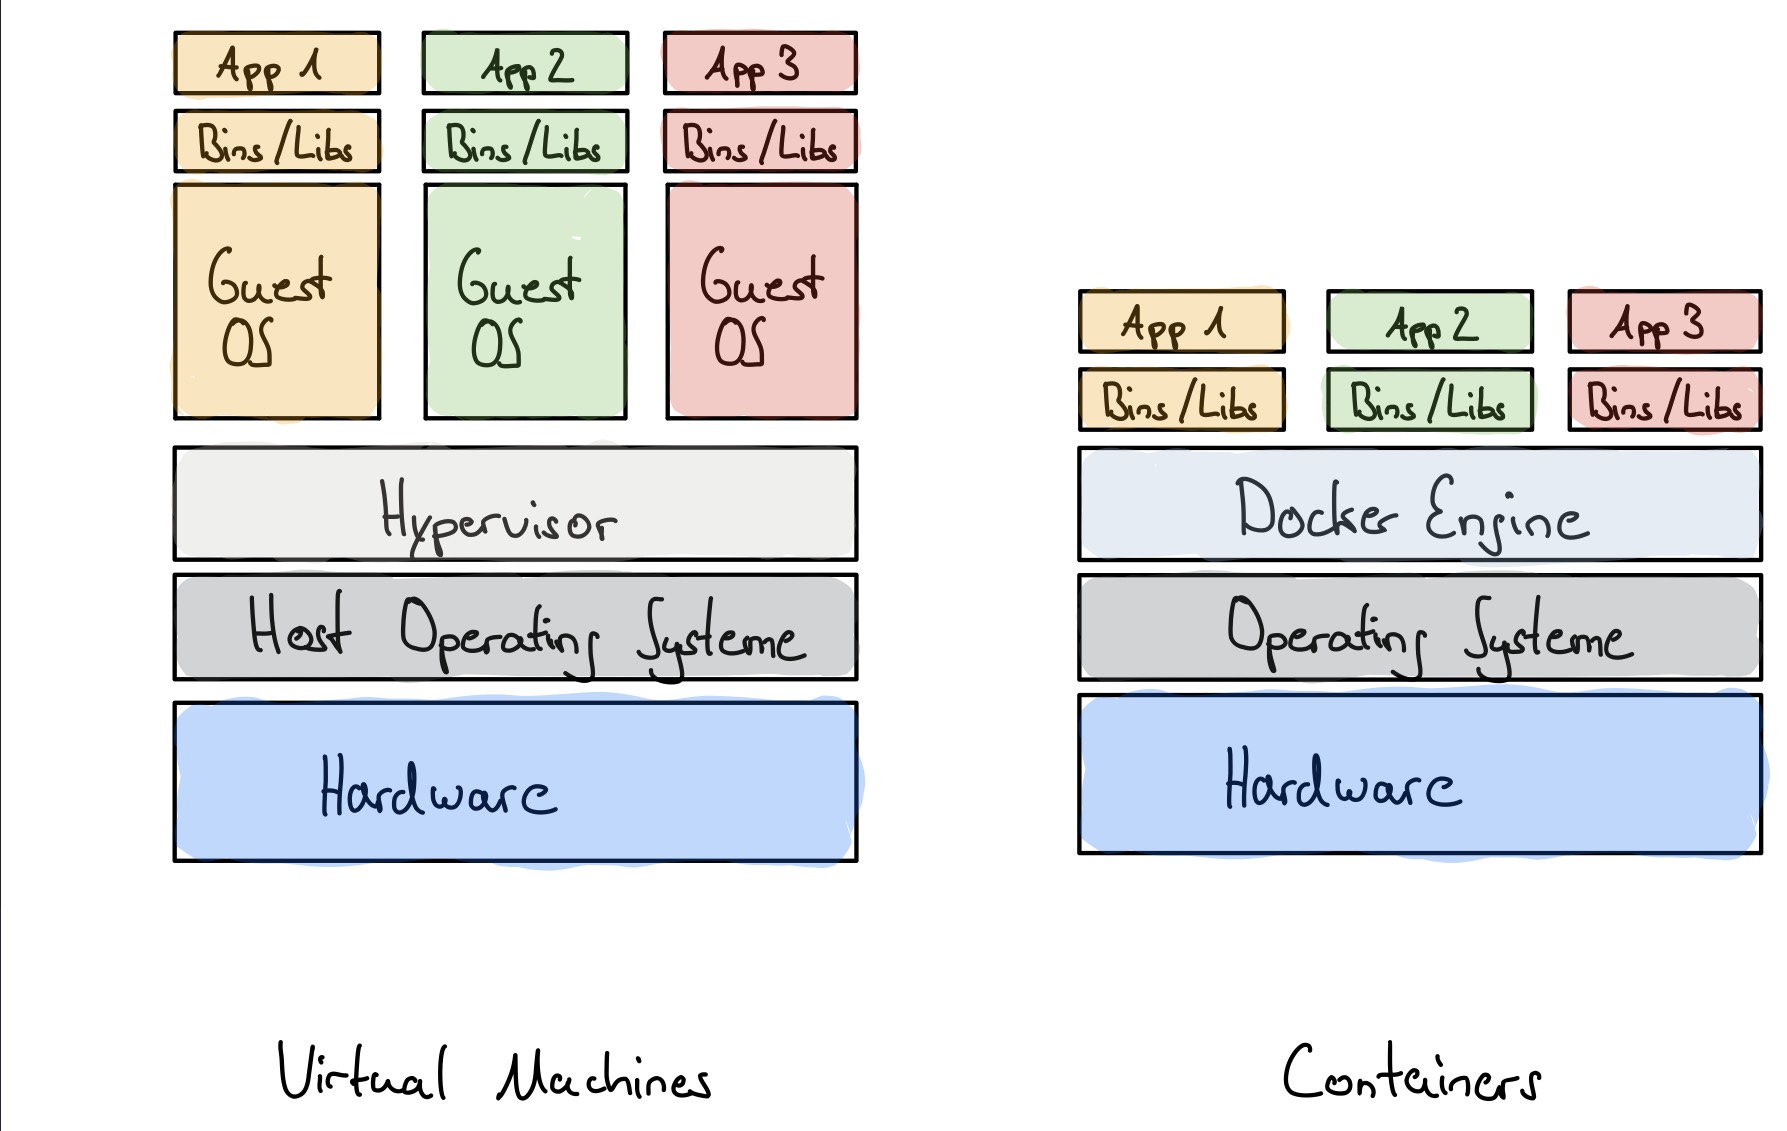 App 1
App 2
App 3
Bins/Libs
Bins/Libs
Bins/Libs
Guest
OS
Guest
OS
Guest
OS
Hypervisor
Host Operating Systeme
Hardware
Virtual Machines
App 1
App 2
App 3
Bins/Libs
Bins/Libs
Bins/Libs
Docker Engine
Operating Systeme
Hardware
Containers